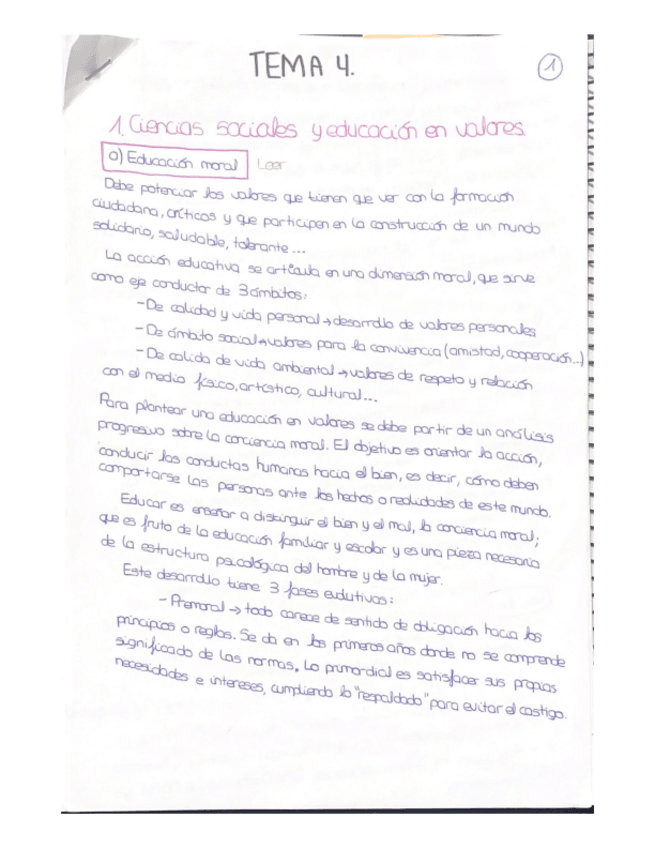 TEMA 4.
1
1. Ciencias sociales y educación en valores.
a) Educación moral Leer
Debe potenciar los valores que tienen que ver con la formación
ciudadana, críticos y que participen en la construcción de un mundo
solidario, saludable, tolerante...
La acción educativa se articula en una dimensión moral, que sirve
como eje conductor de 3 ámbitos:
- De calidad y vida personal → desarrollo de valores personales
- De ámbito social → valores para la convivencia (amistad, cooperación...)
- De calida de vida ambiental → valores de respeto y relación
con el medio físico, artístico, cultural...
Para plantear una educación en valores se debe partir de un análisis
progresivo sobre la conciencia moral. El objetivo es orientar la acción,
conducir las conductas humanas hacia el bien, es decir, cómo deben
comportarse las personas ante los hechos o realidades de este mundo.
Educar es enseñar a distinguir el bien y el mal, la conciencia moral;
que es fruto de la educación familiar y escolar y es una pieza necesaria
de la estructura psicológica del hombre y de la mujer.
Este desarrollo tiene 3 fases evolutivas:
- Premoral → todo carece de sentido de obligación hacia los
principios o reglas. Se da en los primeros años donde no se comprende
significado de las normas. Lo primordial es satisfacer sus propias
necesidades e intereses, cumpliendo lo "respaldado" para evitar el castigo.